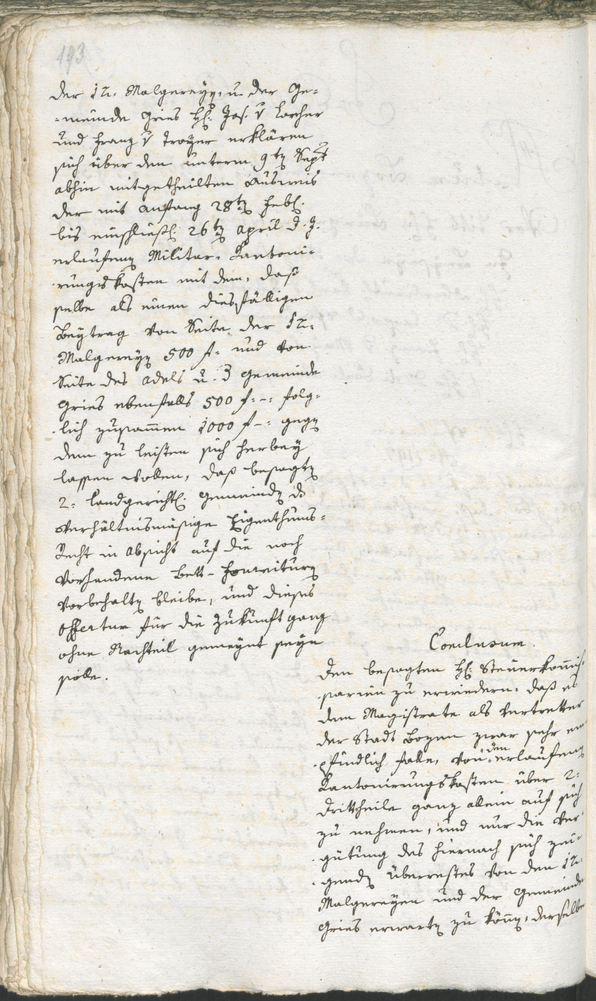 193.
der 12. Malgreyen u. der Ge-
-meinde Gries HH. Jos. v Larcher
und Franz v Troyer erklären
sich über den unterm 9ten Sept
abhin mitgetheilten Ausweis
der mit Anfang 28ten Feb.
bis einschlüßl. 26ten April d. J.
erlaufenen Militar-Kantoni-
-rungskosten mit dem, daß
selbe als einen diesfälligen
Beytrag von Seite der 12.
Malgreyen 500 f. und von
Seite des Adels u. 3 Gemeinde
Gries ebenfalls 500 f.-: folg-
-lich zusammen 1000 f-: gegen
dem zu leisten sich herbey
lassen wollen, daß besagten
2. landgerichtl. Gemeinden das
verhältnismäsige Eigenthums-
Recht in Absicht auf die noch
vorhandene Bett-Fourituren
vorbehalten bleibe, und dieses
Offertum für die Zukunft ganz
ohne Nachteil gemeynt seyn
solle.
Conclusum.
Den besagten HH. Steuerkommis-
-sarien zu erwiedern: daß es
dem Magistrate als Vertretter
der Stadt Bozen zwar sehr em-
-pfindlich falle, von den erlaufenen
Kantonierungskosten über 2.
Drittheile ganz allein auf sich
zu nehmen, und nur die Ver-
-gütung des hiernach sich zei-
-genden Überrestes von den 12.
Malgreyen und der Gemeinde
Gries erwarten zu können, derselbe